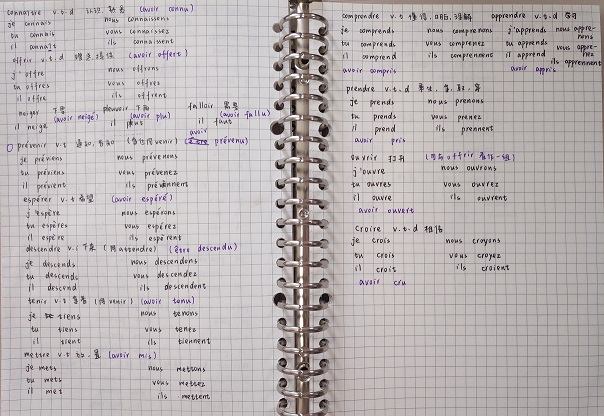 connaître v.t.d 认识,熟悉 (avoir connu)
je connais nous connaissons
tu connais vous connaissez
il connaît ils connaissent
offrir v.t.d (avoir offert)
j'offre nous offrons
tu offres vous offrez
il offre ils offrent
neiger 下雪 pleuvoir 下雨 falloir 需要
(avoir neigé) (avoir plu) (avoir fallu)
il neige il pleut il faut
avoir
prévenir v.t 通知, (venir) (être prévenu)
je préviens nous prévenons
tu préviens vous prévenez
il prévient ils préviennent
espérer v.t 希望 (avoir espéré)
j'espère nous espérons
tu espères vous espérez
il espère ils espèrent
descendre v.i 下来 (同attendre) (être descendu)
je descends nous descendons
tu descends vous descendez
il descend ils descendent
tenir v.t (同venir) (avoir tenu)
je tiens nous tenons
tu tiens vous tenez
il tient ils tiennent
mettre v.t 放,置 (avoir mis)
je mets nous mettons
tu mets vous mettez
il met ils mettent
comprendre v.t 懂得,明白,理解 apprendre v.t.d 学习
je comprends nous comprenons j'apprends nous apprenons
tu comprends vous comprenez tu apprends vous apprenez
il comprend ils comprennent il apprend ils apprennent
avoir compris avoir appris
prendre v.t.d 乘坐,拿,取
je prends nous prenons
tu prends vous prenez
il prend ils prennent
avoir pris
ouvrir 打开 (可与offrir看作一组)
j'ouvre nous ouvrons
tu ouvres vous ouvrez
il ouvre ils ouvrent
avoir ouvert
croire v.t.d 相信
je crois nous croyons
tu crois vous croyez
il croit ils croient
avoir cru